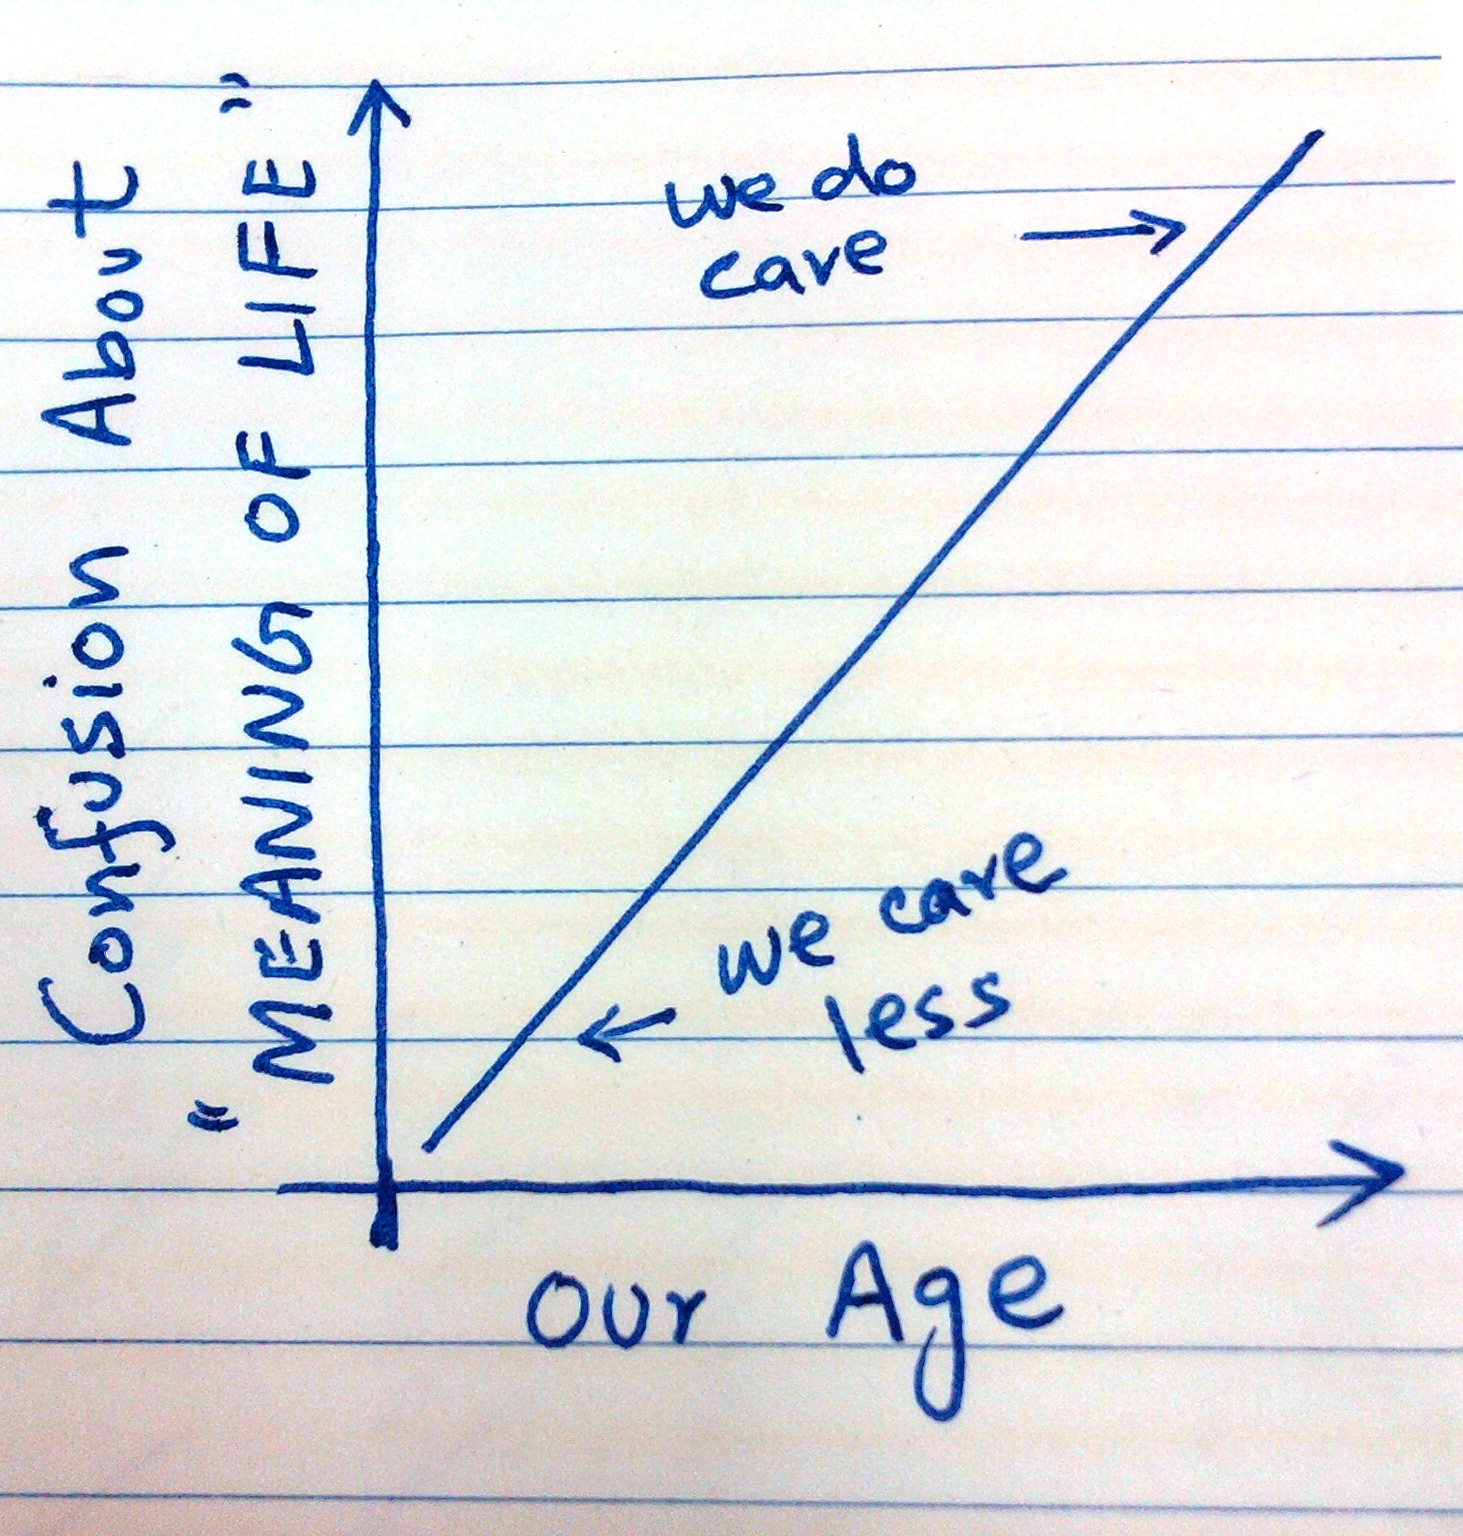 Confusion About
"MEANING OF LIFE"
we do
care
we care
less
our Age